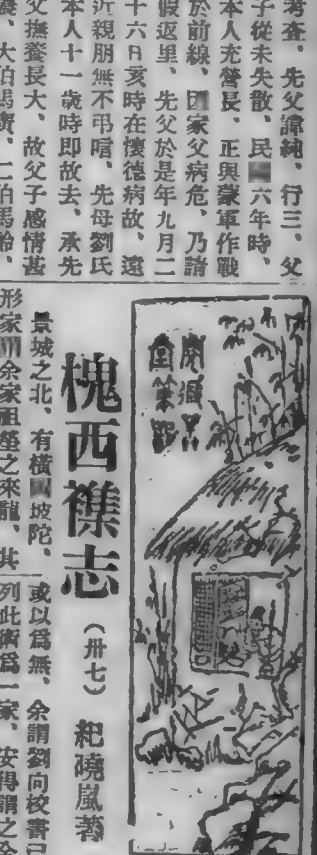 考查、先父諱純、行三、父
子從未失散、民六年時、
本人充營長、正與蒙軍作戰
於前線、因家父病危、乃請
假返里、先父於是年九月二
十六日亥時在懷德病故、遠
近親朋無不弔唁、先母劉氏
本人十一歲時即故去、承先
父撫養長大、故父子感情甚
大伯馬廣、二伯馬
槐西襍志
（卅七）
紀曉嵐著
景城之北、有橫坡陀、
形家余家祖塋之來龍、其
或以爲無、余謂劉向校書已
列此術爲一家、安得謂之全